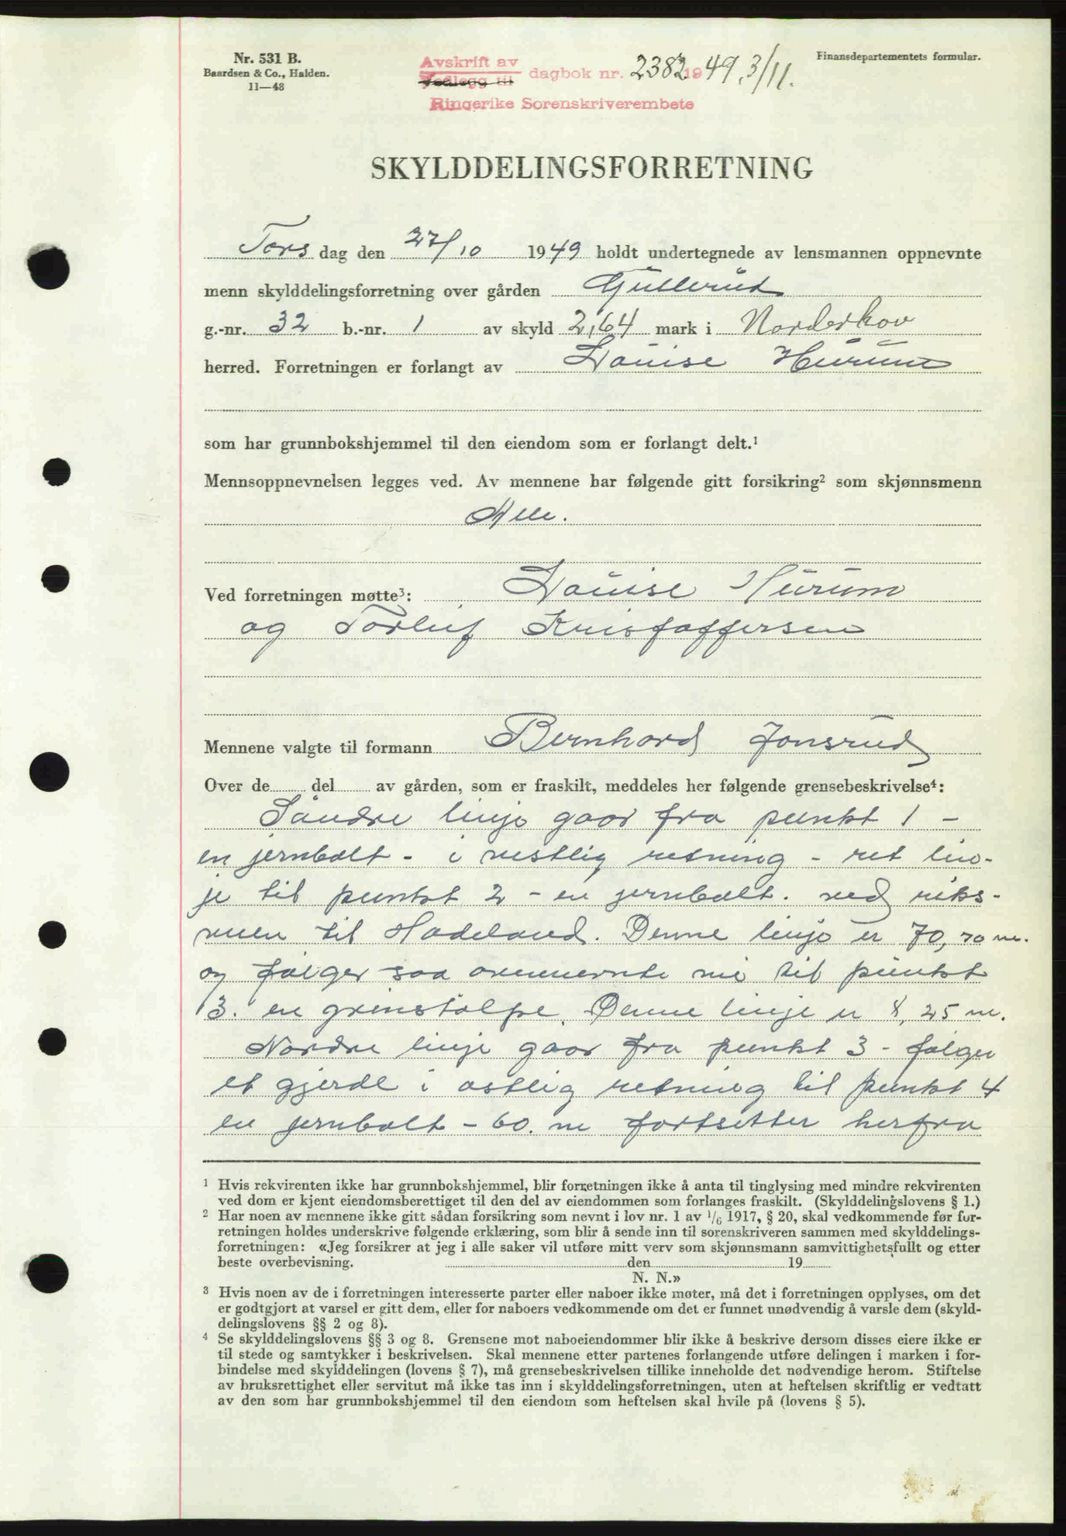 Nr. 531 B.
Baardsen & Co., Halden.
11—48
Avskrift av
Vedlegg til dagbok nr. 2382 1949, 3/11.
Ringerike Sorenskriverembete
Finansdepartementets formular.
SKYLDDELINGSFORRETNING
Tors dag den 27/10 1949 holdt undertegnede av lensmannen oppnevnte
menn skylddelingsforretning over gården Gullerud
g.-nr. 32 b.-nr. 1 av skyld 2,64 mark i Norderhov
herred. Forretningen er forlangt av Louise Hurum
som har grunnbokshjemmel til den eiendom som er forlangt delt.¹
Mennsoppnevnelsen legges ved. Av mennene har følgende gitt forsikring² som skjønnsmenn
Alle.
Ved forretningen møtte³: Louise Hurum
og Torleif Kristoffersen
Mennene valgte til formann Bernhard Jonsrud
Over de del av gården, som er fraskilt, meddeles her følgende grensebeskrivelse⁴:
Søndre linje gaar fra punkt 1 –
en jernbolt - i vestlig retning - ret lin-
je til punkt 2 - en jernbolt. ved riks-
veien til Hadeland. Denne linje er 70,70 m.
og følger saa ovennevnte vei til punkt
3. en grinstolpe. Denne linje er 8,25 m.
Nordre linje gaar fra punkt 3 - følger
et gjerde i østlig retning til punkt 4
en jernbolt – 60. m fortsetter herfra
¹ Hvis rekvirenten ikke har grunnbokshjemmel, blir forretningen ikke å anta til tinglysing med mindre rekvirenten
ved dom er kjent eiendomsberettiget til den del av eiendommen som forlanges fraskilt. (Skylddelingslovens § 1.)
² Har noen av mennene ikke gitt sådan forsikring som nevnt i lov nr. 1 av 1/6 1917, § 20, skal vedkommende før for-
retningen holdes underskrive følgende erklæring, som blir å sende inn til sorenskriveren sammen med skylddelings-
forretningen: «Jeg forsikrer at jeg i alle saker vil utføre mitt verv som skjønnsmann samvittighetsfullt og etter
beste overbevisning. den 19
N. N.»
³ Hvis noen av de i forretningen interesserte parter eller naboer ikke møter, må det i forretningen opplyses, om det
er godtgjort at varsel er gitt dem, eller for naboers vedkommende om det er funnet unødvendig å varsle dem (skyld-
delingslovens §§ 2 og 8).
⁴ Se skylddelingslovens §§ 3 og 8. Grensene mot naboeiendommer blir ikke å beskrive dersom disses eiere ikke er
til stede og samtykker i beskrivelsen. Skal mennene etter partenes forlangende utføre delingen i marken i for-
bindelse med skylddelingen (lovens § 7), må grensebeskrivelsen tillike inneholde det nødvendige herom. Stiftelse
av bruksrettighet eller servitut må ikke tas inn i skylddelingsforretningen, uten at heftelsen skriftlig er vedtatt
av den som har grunnbokshjemmel til den eiendom som heftelsen skal hvile på (lovens § 5).